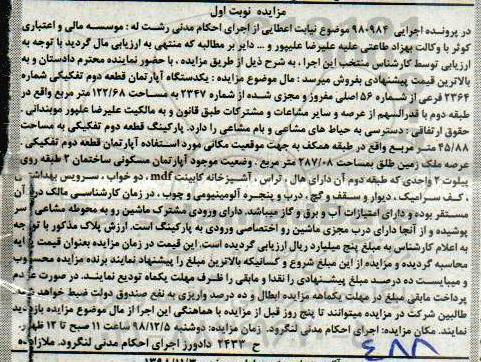 مزایده نوبت اول
در پرونده اجرایی ۹۸۰۹۸۴ موضوع نیابت اعطایی از اجرای احکام مدنی رشت له : موسسه مالی و اعتباری
کوثر با وکالت بهزاد طاعتی علیه علیرضا علیپور و ... دایر بر مطالبه که منتهی به ارزیابی مال گردید با توجه به
ارزیابی توسط کارشناس منتخب این اجرا ، به شرح ذیل از طریق مزایده ، با حضور نماینده محترم دادستان و به
بالاترین قیمت پیشنهادی بفروش میرسد : مال موضوع مزایده : یکدستگاه آپارتمان قطعه دوم تفکیکی شماره
۲۳۶۴ فرعی از شماره ۵۶ اصلی مفروز و مجزی شده از شماره ۲۳۴۷ به مساحت ۱۲۲/۶۸ متر مربع واقع در
طبقه دوم با قدرالسهم از عرصه و سایر مشاعات و مشترکات طبق قانون و به مالکیت علیرضا علیپور موبندانی
حقوق ارتفاقی : دسترسی به حیاط های مشاعی و بام مشاعی را دارد. پارکینگ قطعه دوم تفکیکی به مساحت
۴۵/۸۸ متر مربع واقع در طبقه همکف به جهت موقعیت مکانی مورد استفاده آپارتمان قطعه دوم تفکیکی
عرصه ملک زمین طلق بمساحت ۲۸۷/۰۸ متر مربع . وضعیت موجود آپارتمان مسکونی ساختمان ۲ طبقه روی
پیلوت ۲ واحدی که طبقه دوم آن دارای هال ، تراس ، آشپزخانه کابینت mdf، دو خواب ، سرویس بهداشتی
، کف سرامیک ، دیوار و سقف و گچ ، درب و پنجره آلومینیومی و چوب ، در زمان کارشناسی مالک در آن
مستقر بوده و دارای امتیازات آب و برق و گاز میباشد. دارای ورودی مشترک ماشین رو به محوطه مشاعی سر
پوشیده و از آنجا دارای درب مجزی ماشین رو اختصاصی ورودی به پارکینگ است. ارزش پلاک مذکور با توجه
به اعلام کارشناس به مبلغ پنج میلیارد ریال ارزیابی گردیده است. این قیمت در زمان مزایده بعنوان قیمت پایه
محاسبه گردیده و مزایده از این مبلغ شروع و کسانیکه بالاترین مبلغ را پیشنهاد نمایند برنده مزایده محسوب
و میبایست ده درصد مبلغ پیشنهادی را نقدا و مابقی را ظرف مهلت یکماه تودیع نمایند. در صورت عدم
پرداخت مابقی مبلغ در مهلت یکماهه مزایده ابطال و ده درصد واریزی به نفع صندوق دولت ضبط خواهد
طالبین شرکت در مزایده میتوانند تا پنج روز قبل از مزایده با هماهنگی این اجرا از مال موضوع مزایده بازدید
نمایند. مکان مزایده: اجرای احکام مدنی لنگرود. زمان مزایده: دوشنبه ۹۸/۱۲/۵ ساعت ۱۱ صبح تا ۱۲ ظهر.
ح ۲۴۳۳ دادورز اجرای احکام مدنی لنگرود. ملازاده
۴۸۸